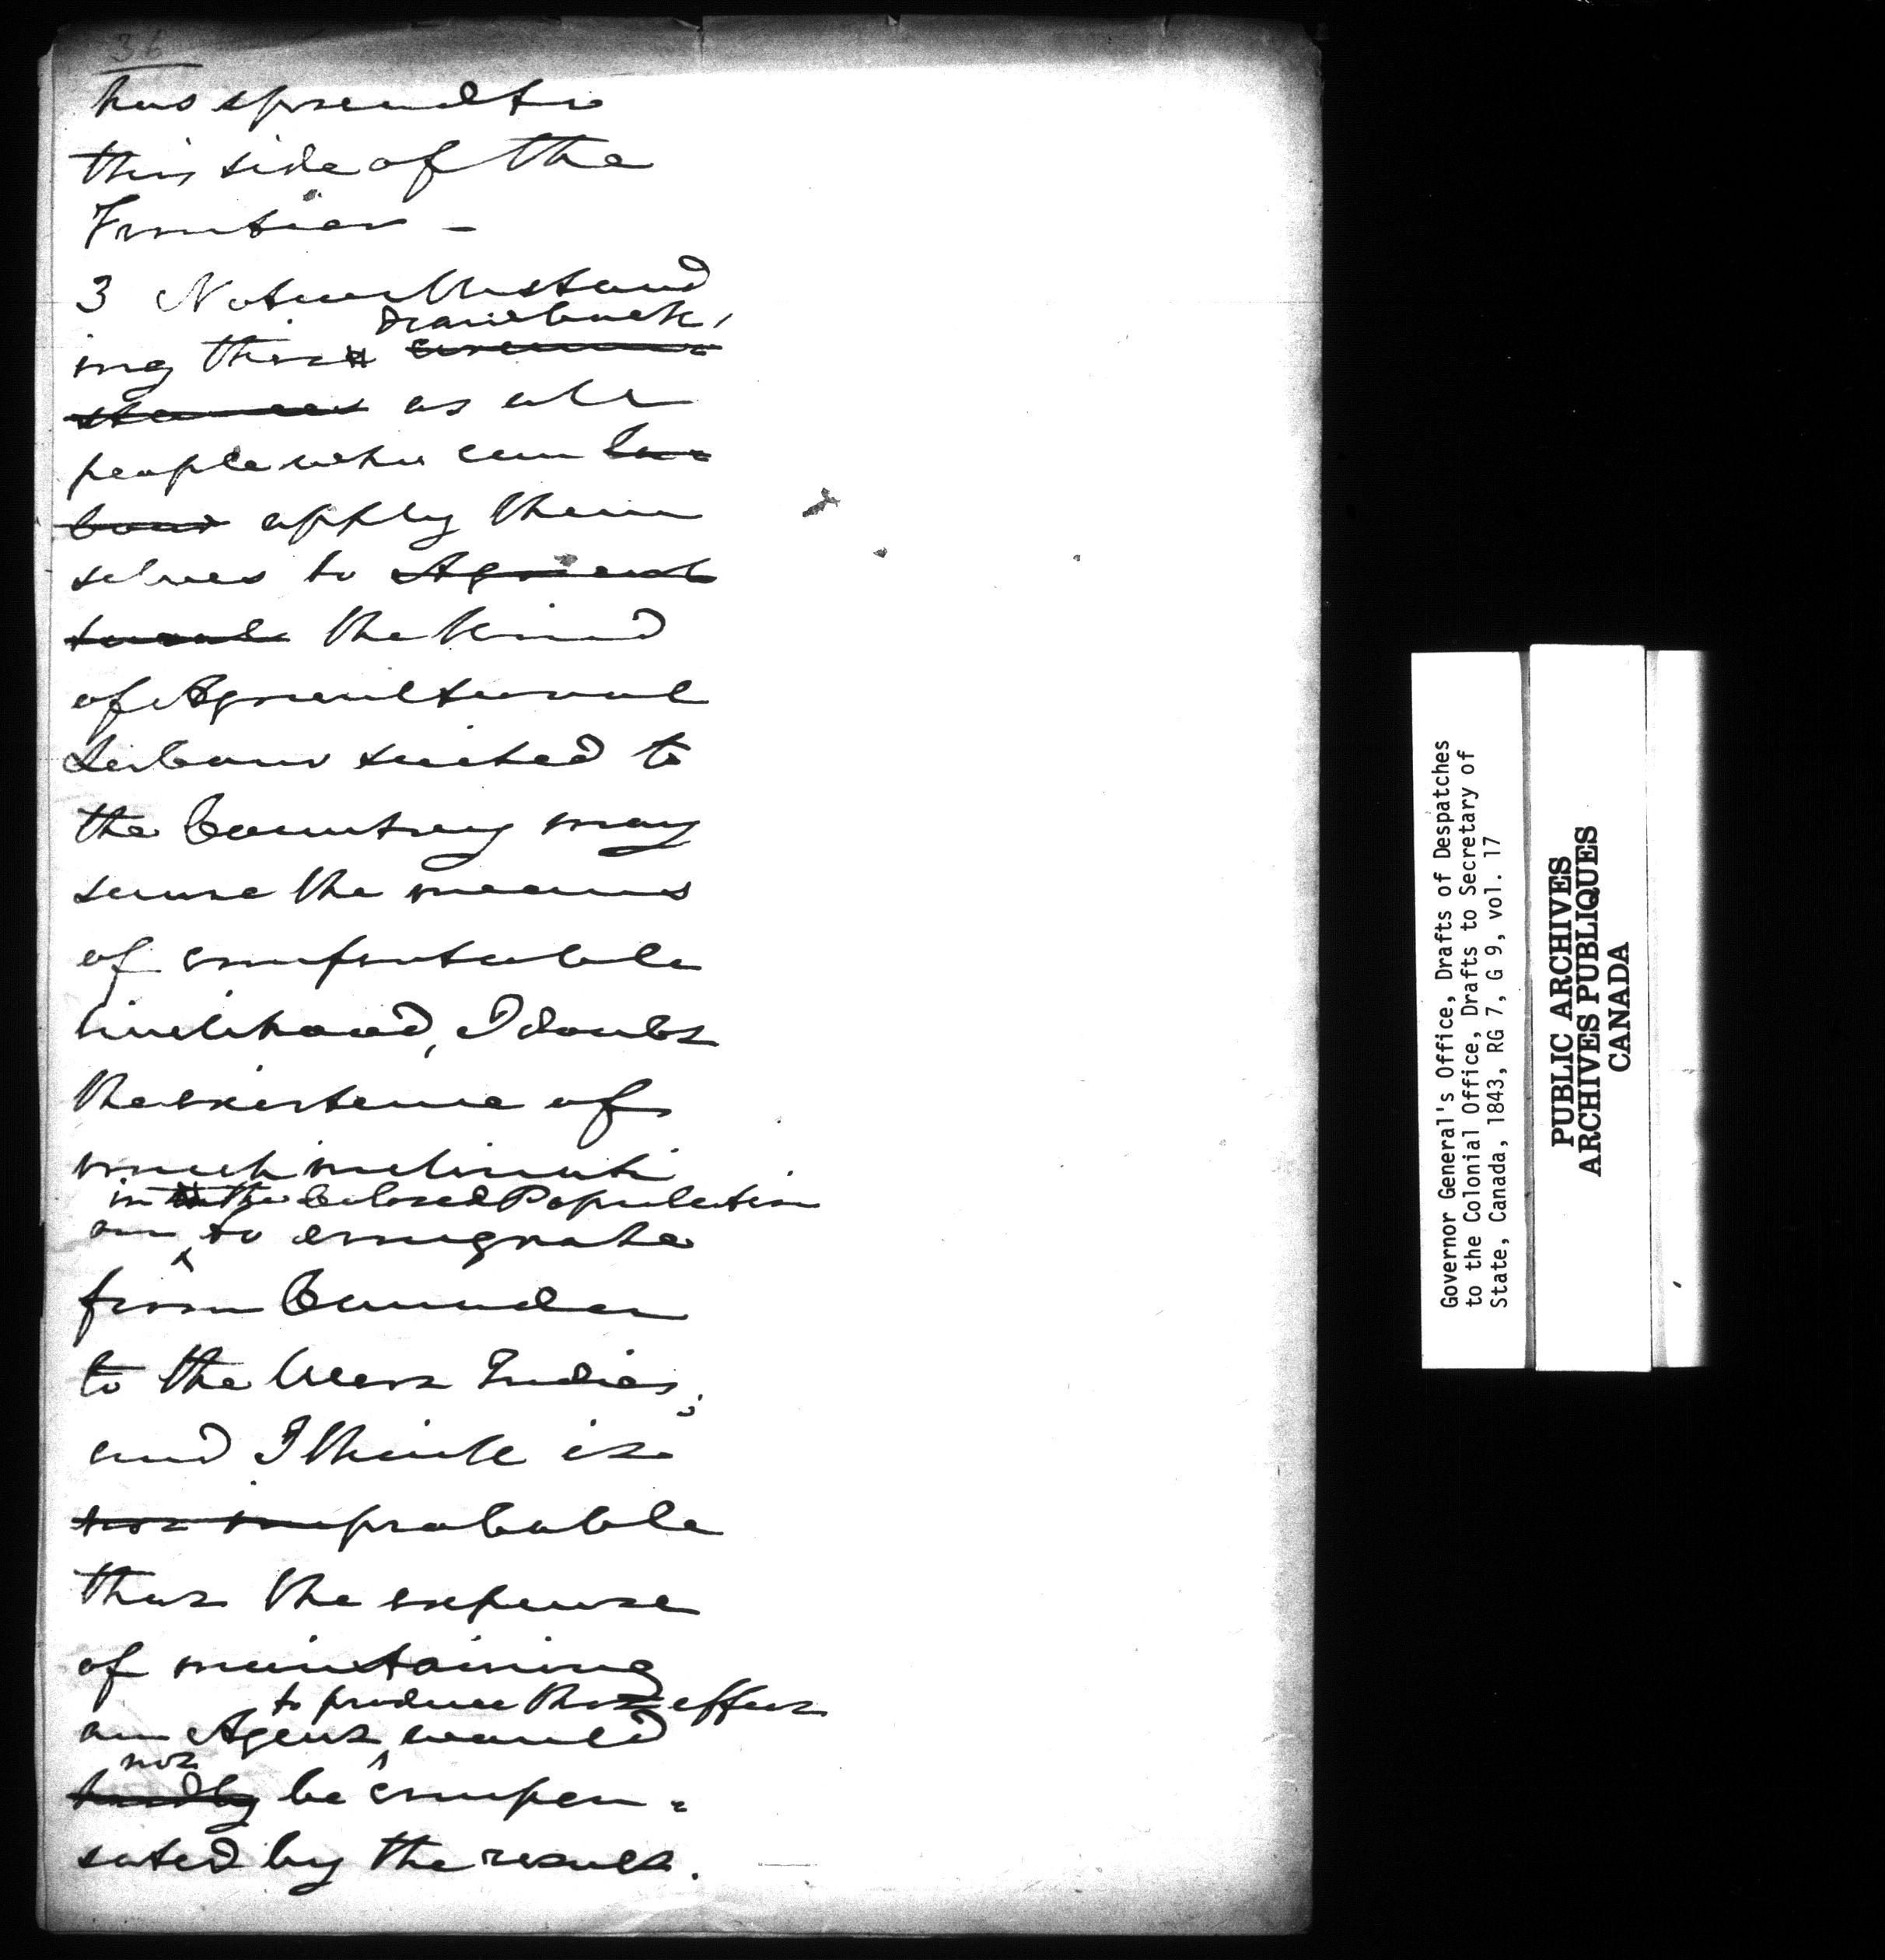 36
has spread to
this side of the
Frontier -
3 Notwithstand
drawback,
ing this circum=
stances as all
people who can la=
bour apply them
selves to Agricul
tural the kind
of Agricultural
Labour suited to
the Country may
secure the means
of comfortable
livelihood, I doubt
the existence of
much inclinati
in the Colored Population
on to emigrate
from Canada
to the West Indies;
and I think it
not improbable
that the expense
of maintaining
to produce that effect
an Agent would
not
hardly be compen=
sated by the result.
Governor General's Office, Drafts of Despatches
to the Colonial Office, Drafts to Secretary of
State, Canada, 1843, RG 7, G 9, vol. 17
PUBLIC ARCHIVES
ARCHIVES PUBLIQUES
CANADA